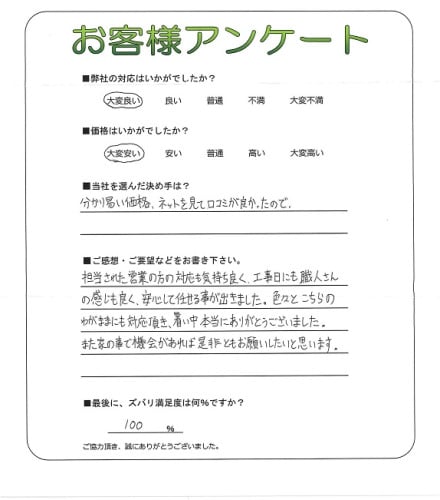 お客様アンケート
■弊社の対応はいかがでしたか?
大変良い 良い 普通 不満 大変不満
■価格はいかがでしたか?
大変安い 安い 普通 高い 大変高い
■当社を選んだ決め手は?
分かり易い価格、ネットを見て口コミが良かったので。
■ご感想・ご要望などをお書き下さい。
担当された営業の方の対応も気持ち良く、工事日にも職人さん
の感じも良く、安心して任せる事が出きました。色々とこちらの
わがままにも対応頂き、暑い中本当にありがとうございました。
また家の事で機会があれば是非ともお願いしたいと思います。
■最後に、ズバリ満足度は何%ですか?
100 %
ご協力頂き、誠にありがとうございました。